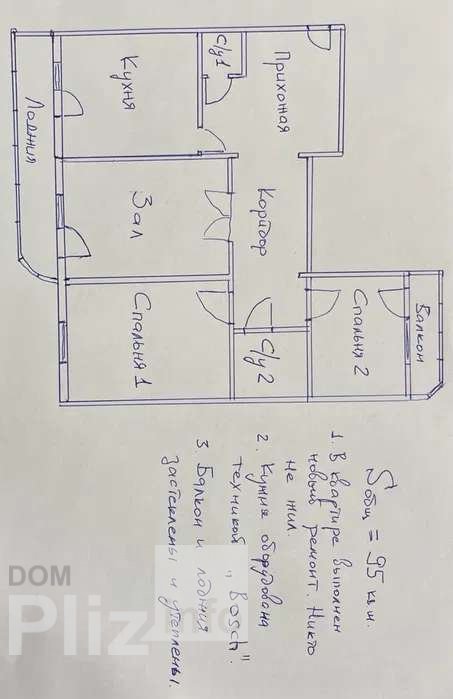 Прихожая
С/у1
Кухня
Лоджия
Коридор
Зал
Балкон
Спальня 2
С/у 2
Спальня 1
Sобщ = 95 кв.м.
1. В квартире выполнен
новый ремонт. Никто
не жил.
2. Кухня оборудована
техникой „Bosch".
3. Балкон и лоджия
застеклены и утеплены.
DOM
Pliz info